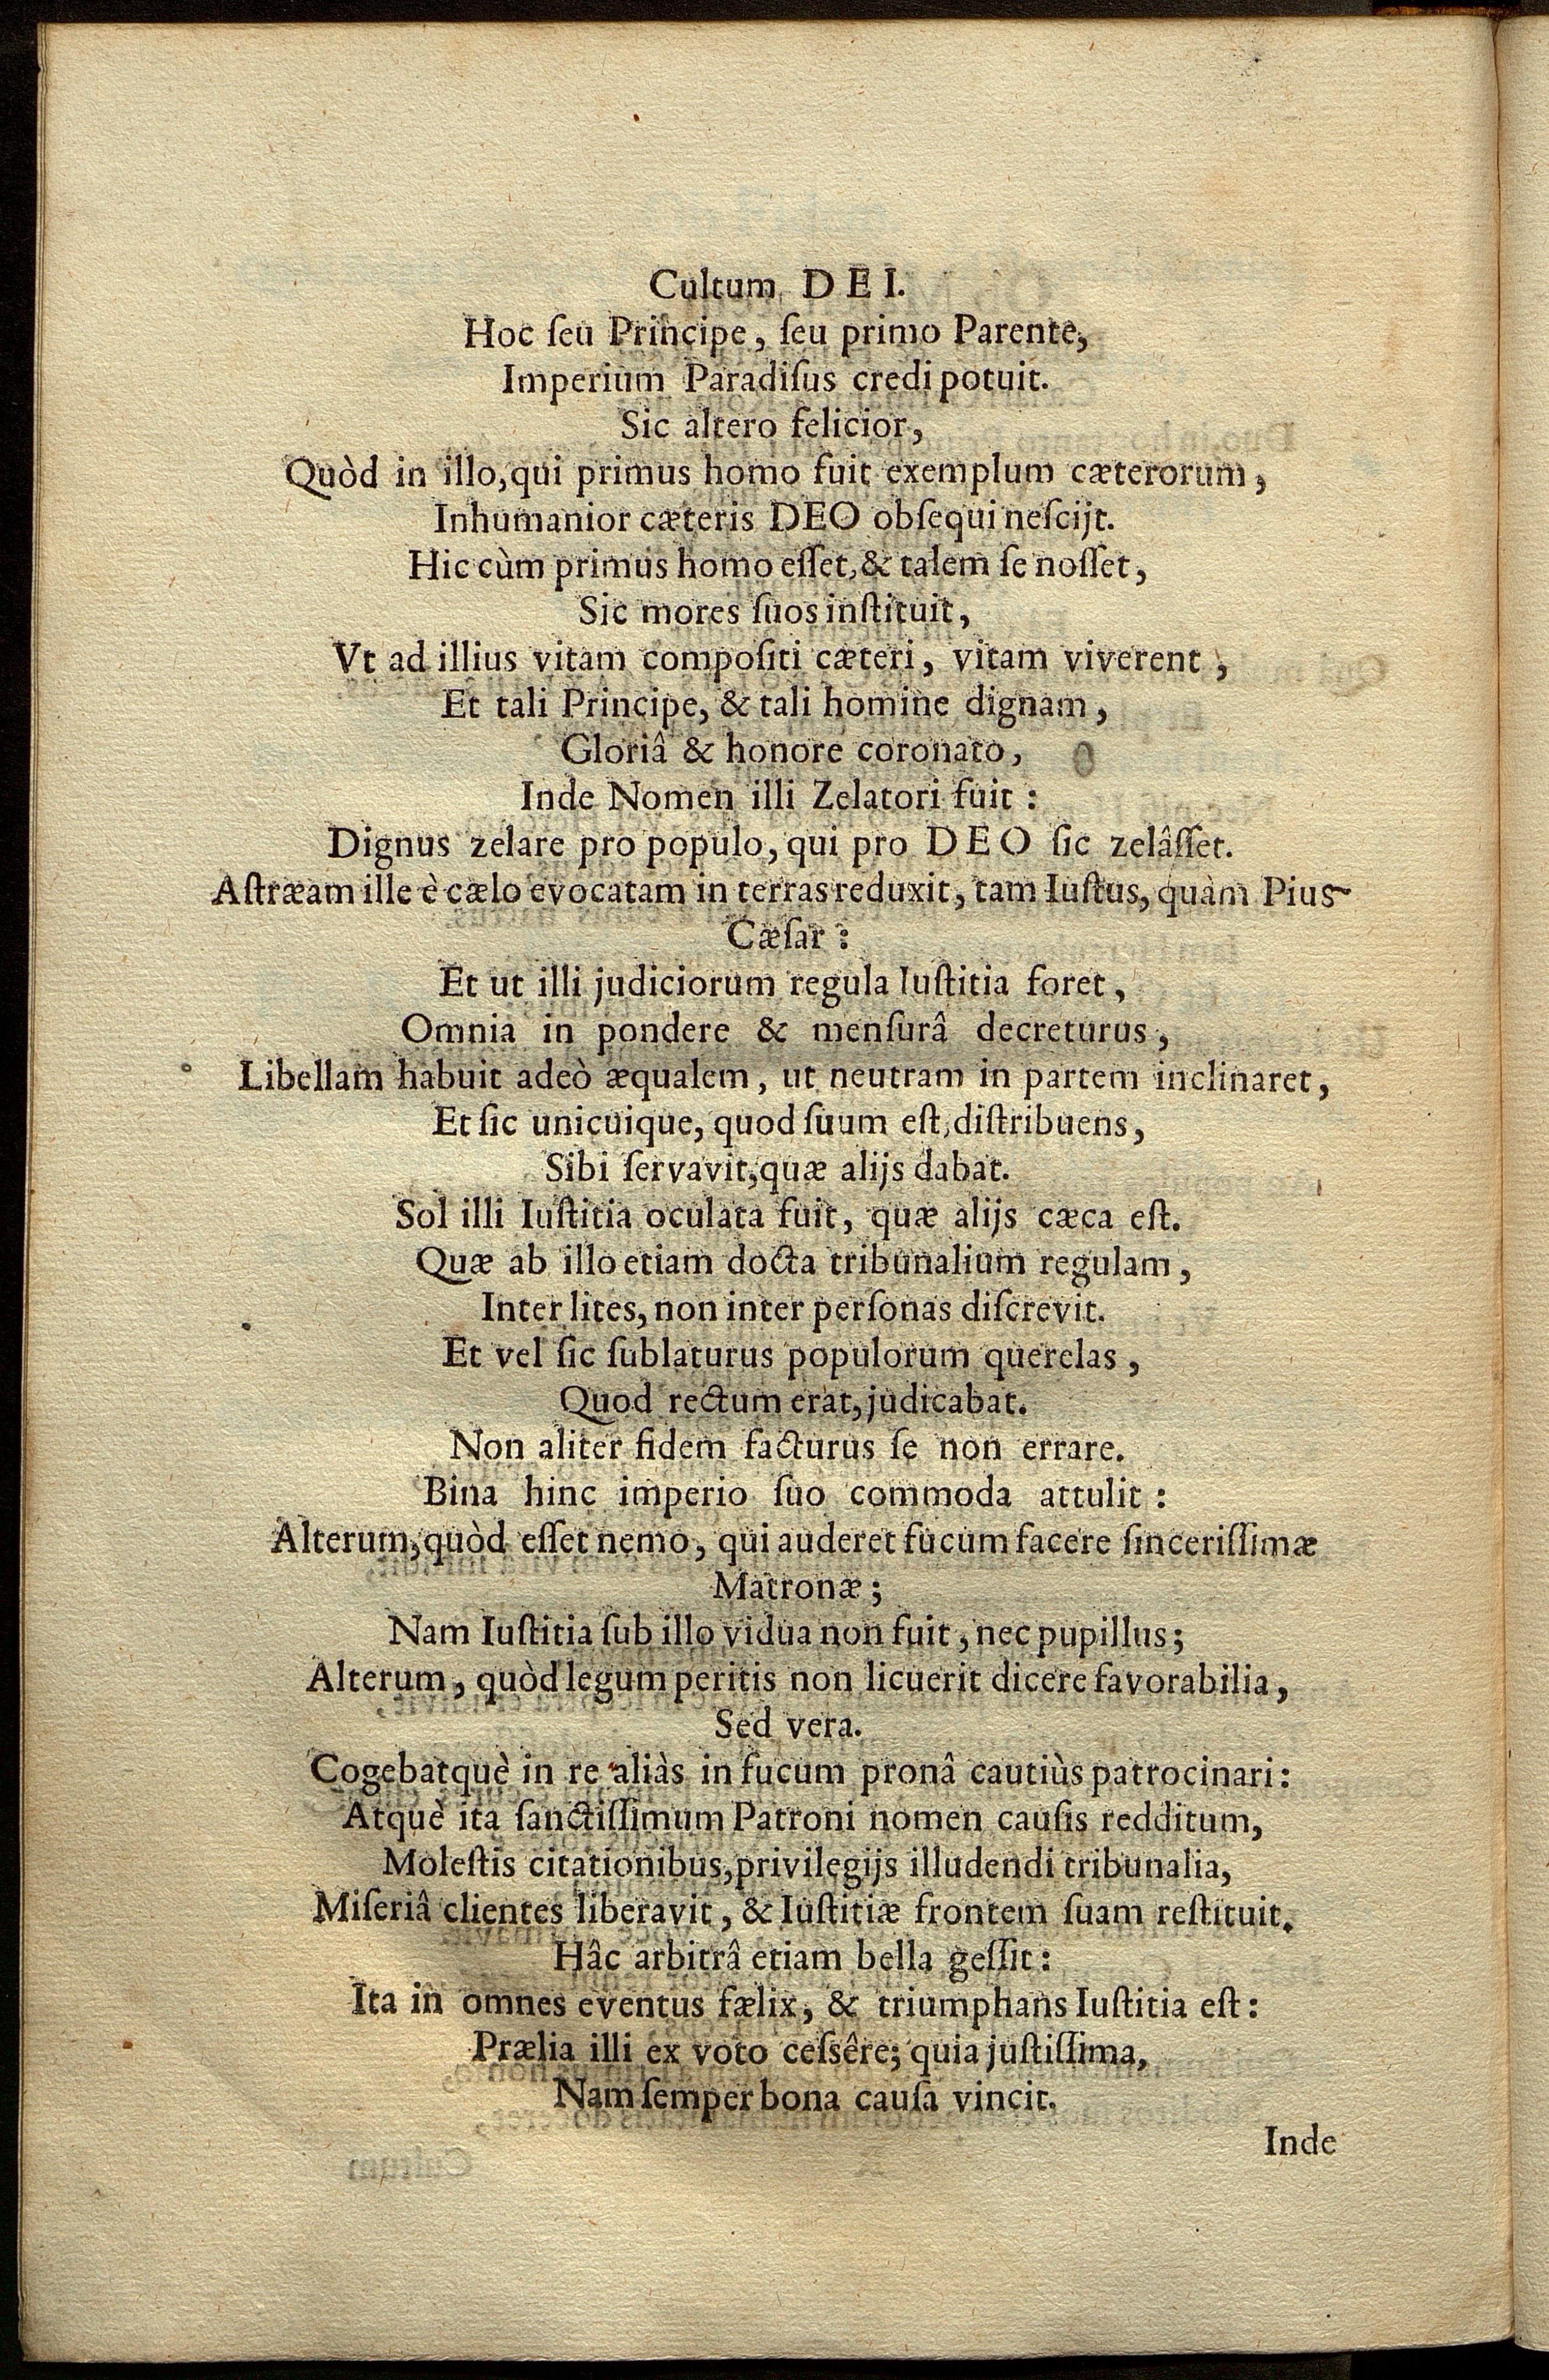 Cultum DEI.
Hoc ſeu Principe, ſeu primo Parente,
Imperium Paradiſus credi potuit.
Sic altero felicior,
Quòd in illo, qui primus homo fuit exemplum cæterorum,
Inhumanior cæteris DEO obſequi neſcijt.
Hic cùm primus homo eſſet, & talem ſe noſſet,
Sic mores ſuos inſtituit,
Vt ad illius vitam compoſiti cæteri, vitam viverent,
Et tali Principe, & tali homine dignam,
Gloriâ & honore coronato,
Inde Nomen illi Zelatori fuit:
Dignus zelare pro populo, qui pro DEO ſic zelâſſet.
Aſtræam ille è cælo evocatam in terras reduxit, tam Iuſtus, quàm Pius
Cæſar:
Et ut illi judiciorum regula Iuſtitia foret,
Omnia in pondere & menſurâ decreturus,
Libellam habuit adeò æqualem, ut neutram in partem inclinaret,
Et ſic unicuique, quod ſuum eſt, diſtribuens,
Sibi ſervavit, quæ alijs dabat.
Sol illi Iuſtitia oculata fuit, quæ alijs cæca eſt.
Quæ ab illo etiam docta tribunalium regulam,
Inter lites, non inter perſonas diſcrevit.
Et vel ſic ſublaturus populorum querelas,
Quod rectum erat, judicabat.
Non aliter fidem facturus ſe non errare.
Bina hinc imperio ſuo commoda attulit:
Alterum, quòd eſſet nemo, qui auderet fucum facere ſinceriſſimæ
Matronæ;
Nam Iuſtitia ſub illo vidua non fuit, nec pupillus;
Alterum, quòd legum peritis non licuerit dicere favorabilia,
Sed vera.
Cogebatquè in re aliàs in fucum pronâ cautiùs patrocinari:
Atquè ita ſanctiſſimum Patroni nomen cauſis redditum,
Moleſtis citationibus, privilegijs illudendi tribunalia,
Miſeriâ clientes liberavit, & Iuſtitiæ frontem ſuam reſtituit.
Hâc arbitrâ etiam bella geſſit:
Ita in omnes eventus fælix, & triumphans Iuſtitia eſt:
Prælia illi ex voto ceſsêre; quia juſtiſſima,
Nam ſemper bona cauſa vincit.
Inde